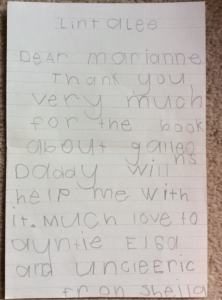 Lintalee
Dear marianne
Thank you
very much
for the book
about galleo
ns
Daddy will
help me with
it. Much love to
ayntie Elsa
and uncleEric
from Shella